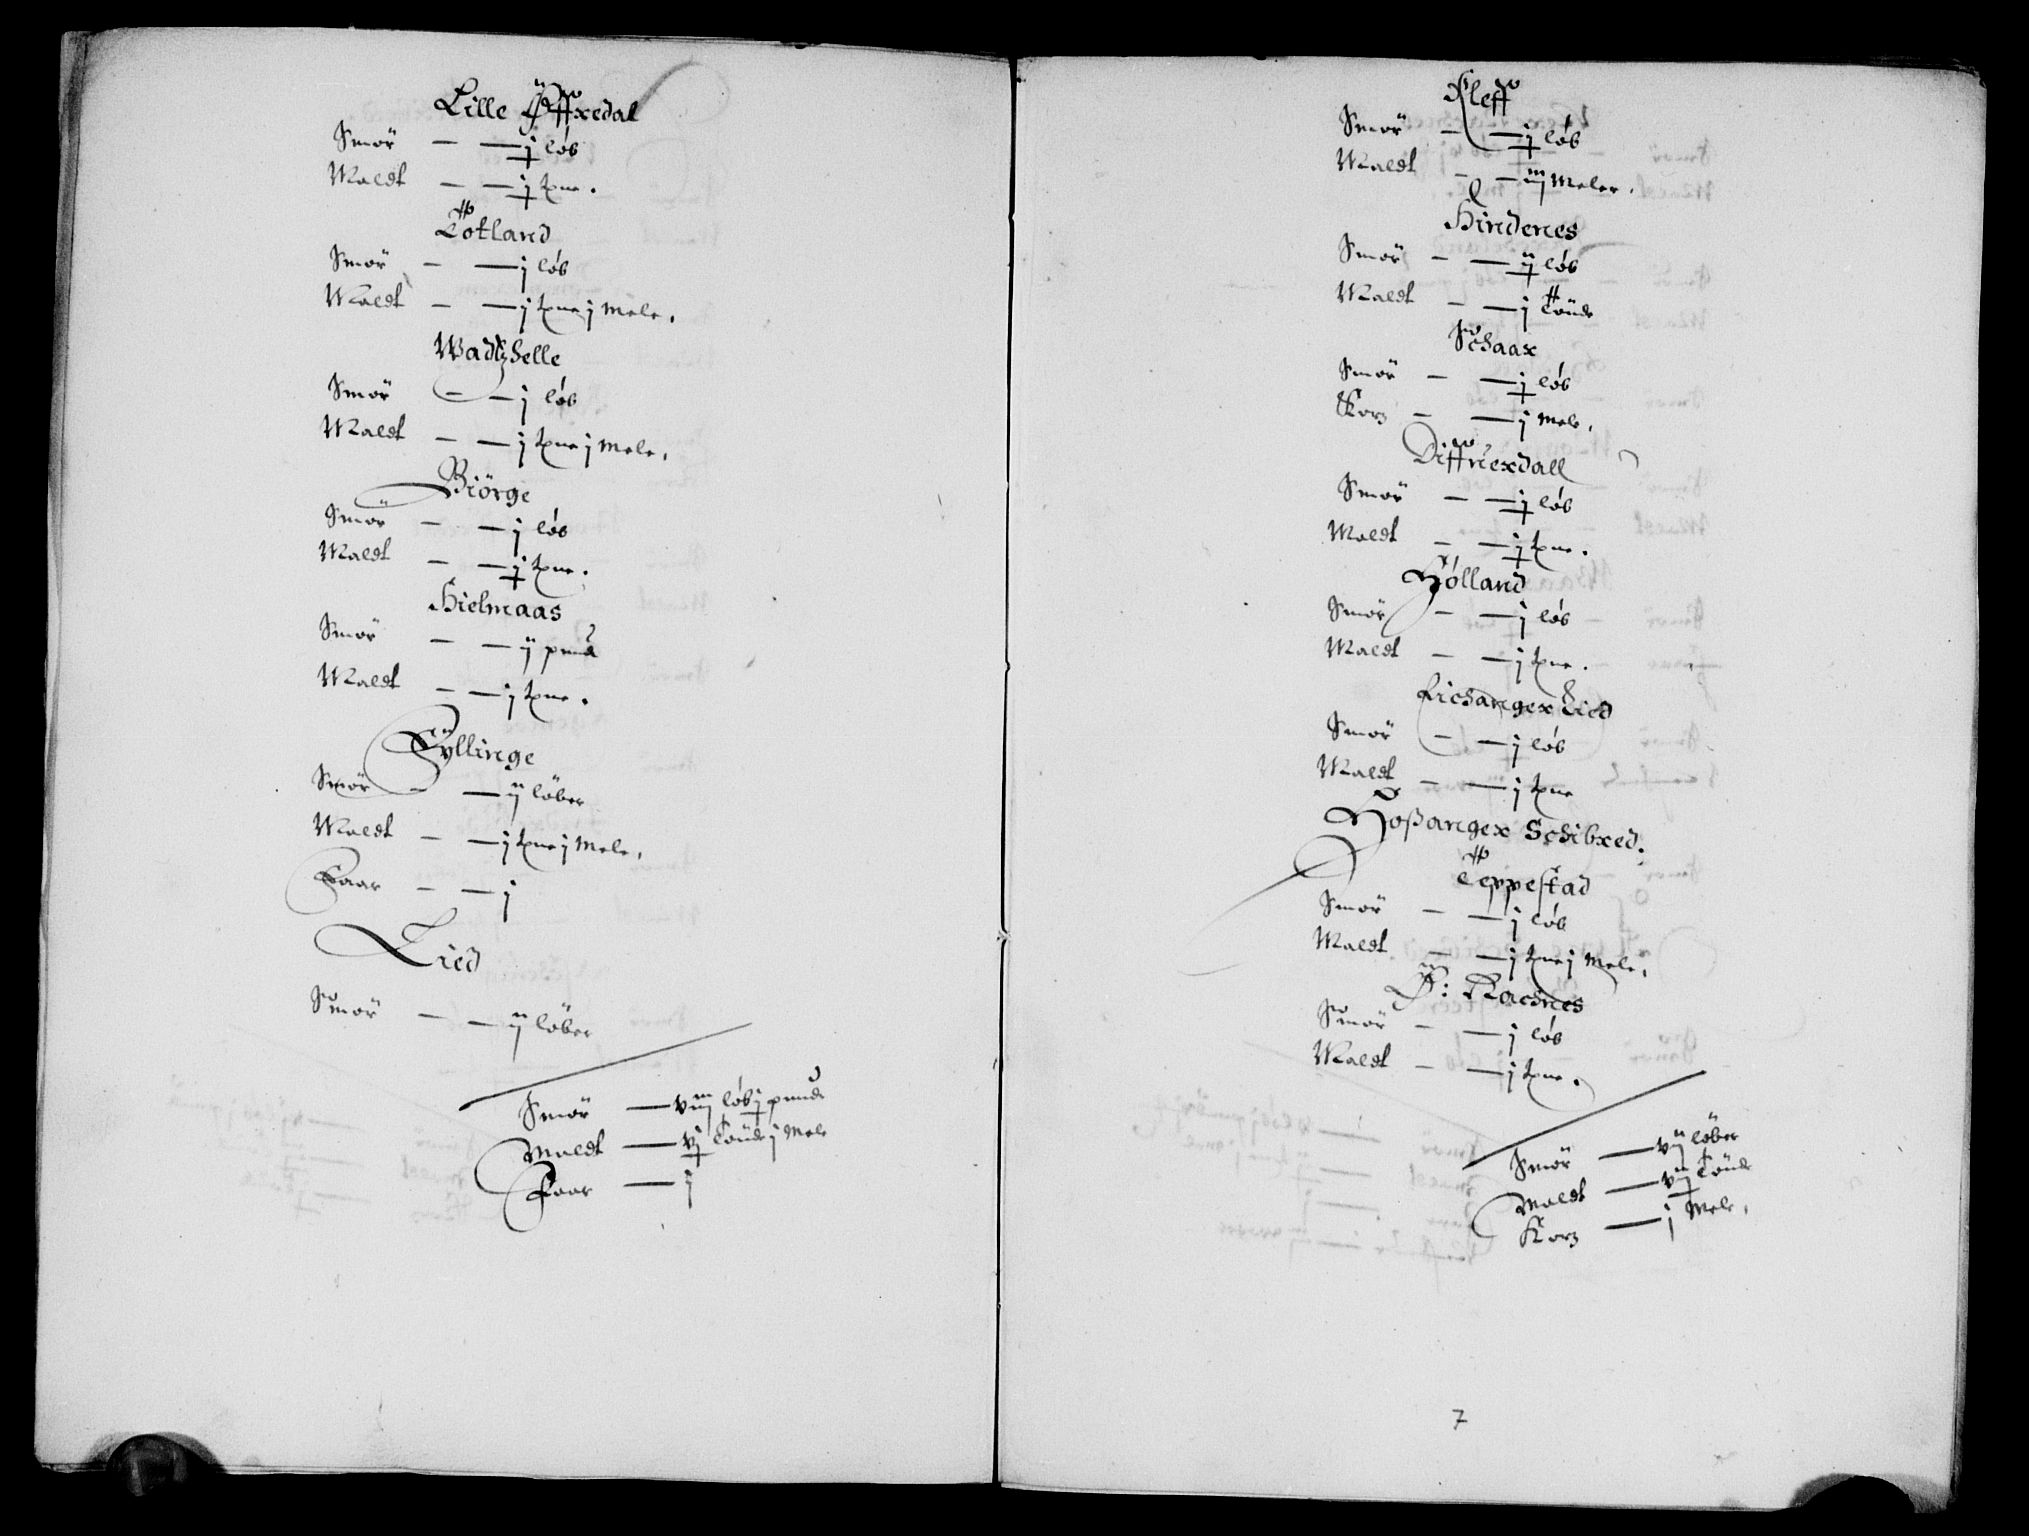 Lille Øffredal
Smör — — j løb
Maldt — — j tne.
Totland
Smör — — j løb
Maldt — — j tne j Mele.
Wadtzhelle
Smör — — j løb
Maldt — — j tne j Mele.
Biörge
Smör — — j løb
Maldt — — j tne.
Hielmaas
Smör — — ij pund
Maldt — — j tne.
Fyllinge
Smör — — ij löber
Maldt — — j tne j Mele.
Faar — — j
Lied
Smör — — ij löber
Smör — viij løb j pund
Maldt — vj Tönde j Mele
Faar — j
Kleff
Smör — — j løb
Maldt — — iij Meler.
Hindenes
Smör — — ij løb
Maldt — — j Tönde
Schaar
Smör — — j løb
Korn — — j Mele.
Diffuerdall
Smör — — j løb
Maldt — — j tne.
Hölland
Smör — — j løb
Maldt — — j tne.
Eichanger Eied
Smör — — j løb
Maldt — — j tne
Hoßanger Schibred.
Teppestad
Smör — — j løb
Maldt — — j tne j Mele.
Ø: Kachnes
Smör — — j løb
Maldt — — j tne.
Smör — vij löber
Maldt — vij Tönde
Korn — j Mele.
7